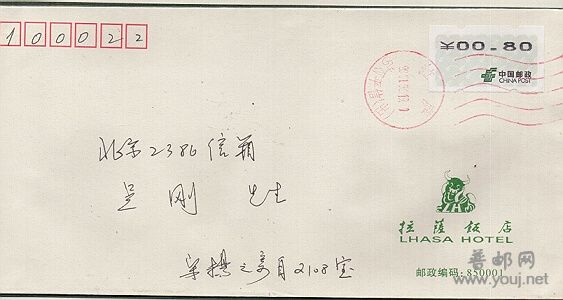 100022
¥00.80
中国邮政
CHINA POST
北京2386信箱
呈刚 先生
拉萨饭店
LHASA HOTEL
邮政编码:850001
2108室
普邮网
www.youj.net